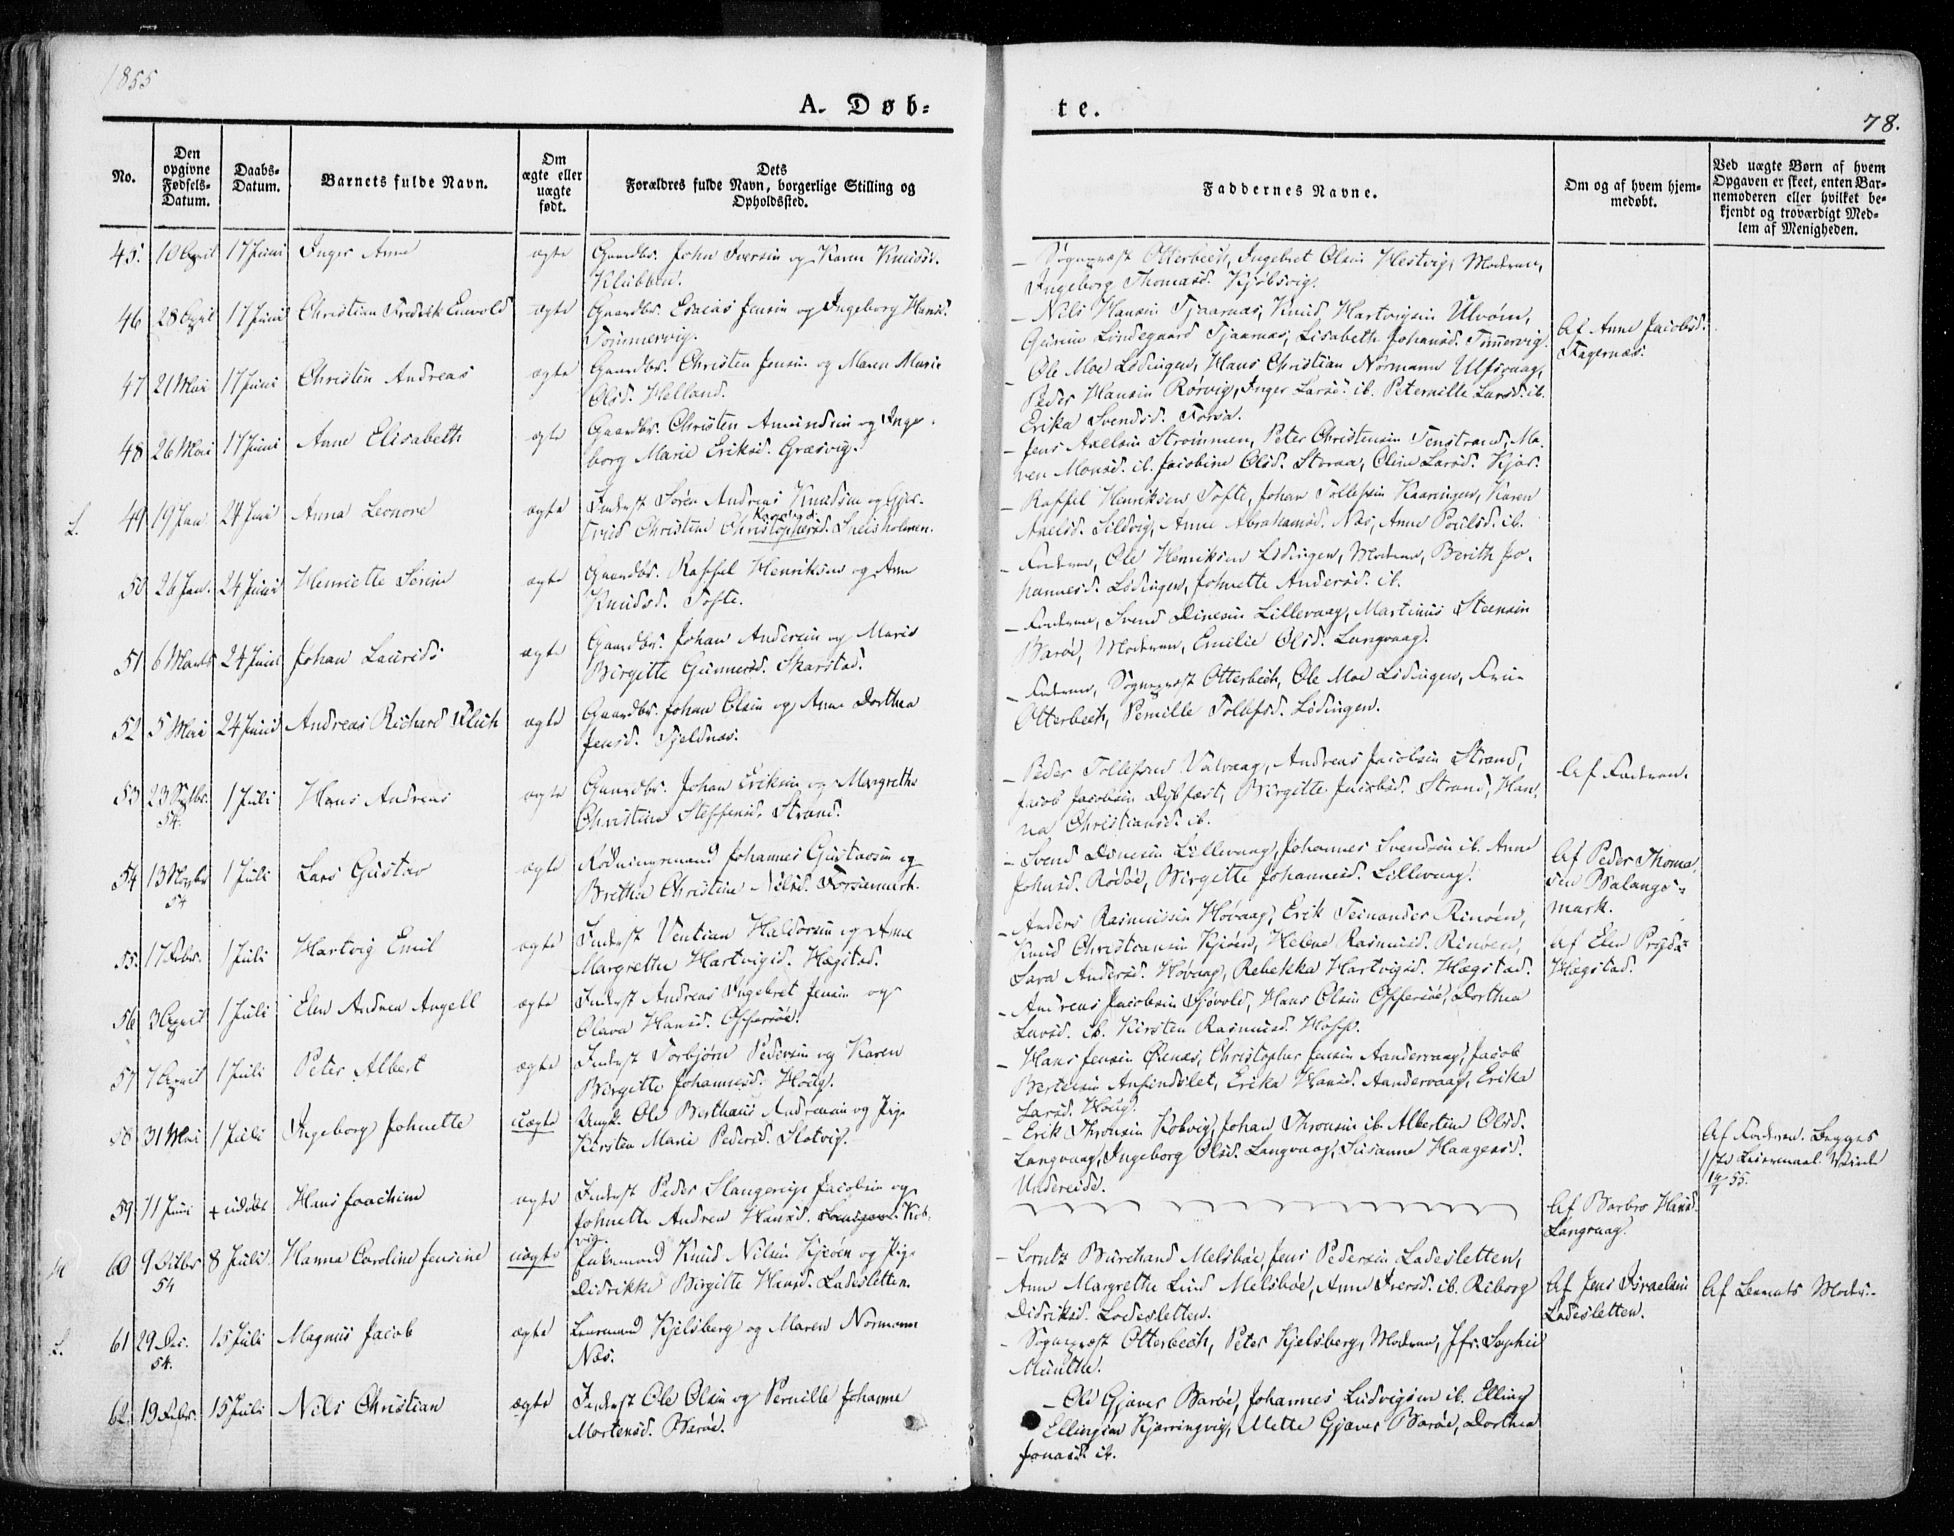 1855
A. Døb=
te.
78.
No.
Den opgivne Fødsels-Datum.
Daabs-Datum.
Barnets fulde Navn.
Om ægte eller uægte født.
Dets Forældres fulde Navn, borgerlige Stilling og Opholdssted.
Faddernes Navne.
Om og af hvem hjemmedøbt.
Ved uægte Børn af hvem Opgaven er skeet, enten Barnemoderen eller hvilket bekjendt og troværdigt Medlem af Menigheden.
45. 10 April 17 Juni Inger Anne ægte Gaardbr. John Iversen og Karen Knudsd.
Klubben.
– Sogneprest Otterbech, Ingebret Olsen Hestvig, Moderen,
Ingeborg Thomasd. Kjøbsvig.
46 28 April 17 Juni Christian Fredrik Enevold ægte Gaardbr. Esaias Jensen og Ingeborg Hansd.
Tømmervig.
– Nils Hansen Tjaarnæs, Knud Hartvigsen Ulvøen,
Lindegaard Tjaarnæs, Lisabeth Johansd. Tømmervig
Af Anne Jacobsd.
Fagernæs.
47 21 Mai 17 Juni Christen Andreas ægte Gaardbr. Christen Jensen og Maren Marie
Olsd. Helland.
– Ole Moe Lødingen, Hans Christian Normann Ulfsvaag,
Peder Hansen Rørvig, Inger Larsd. ib. Peternille Larsd. ib.
Erika Svendsd. Forsa.
48 26 Mai 17 Juni Anne Elisabeth ægte Gaardbr. Christen Amundsen og Inge-
borg Marie Eriksd. Græsvig.
– Jens Axelsen Strømmen, Peter Christensen Tenstrand, Ma-
ren Monsd. ib. Jacobine Olsd. Storaa, Oline Larsd. Kjøs.
L. 49 19 Jan 24 Juni Anna Leonore ægte Inderst Søren Andreas Knudsen og Gjer-
trud Christine Christophersd.
– Raffel Henriksen Tofte, Johan Tollefsen Kaaringen, Karen
Axelsd. Sildvig, Anne Abrahamsd. Næs, Anne Poulsd. ib.
50 26 Jan. 24 Juni Henriette Serine ægte Gaardbr. Raffel Henriksen og Ane
Knudsd. Tofte.
– Faderen, Ole Henriksen Lødingen, Moderen, Berith Jo-
hannesd. Lødingen, Johnette Andersd. ib.
51 6 Marts 24 Juni Johan Laurids ægte Gaardbr. Johan Andersen og Maria
Birgitte Gunnersd. Skarstad.
– Faderen, Svend Dinesen Lillevaag, Martinus Steensen
Barøe, Moderen, Emilie Olsd. Langvaag.
52 5 Mai 24 Juni Andreas Richard Klich ægte Gaardbr. Johan Olsen og Anne Dorthea
Jensd. Fjeldnæs.
– Faderen, Sogneprest Otterbech, Ole Moe Lødingen, Frue
Otterbech, Pernille Tollefsd. Lødingen.
53 23 Septbr. 54. 1 Juli Hans Andreas ægte Gaardbr. Johan Eriksen og Margrethe
Christine Steffensd. Strand.
– Peder Tollefsen Valvaag, Andreas Jacobsen Strand,
Jacob Jacobsen Dybfest, Birgitte Jacobsd. Strand, Han-
na Christiansd. ib.
Af Faderen.
54 13 Novbr 54 1 Juli Lars Gustav ægte Rødningsmand Johannes Gustavsen og
Brethe Christine Nilsd.
– Svend Dinesen Lillevaag, Johannes Svendsen ib. Anne
Johnsd. Rødøe, Birgitte Johannesd. Lillevaag.
Af Peder Thoma-
sen Balangs-
mark.
55. 17 Febr. 1 Juli Hartvig Emil ægte Inderst Ventian Haldorsen og Anne
Margrethe Hartvigsd. Hægstad.
– Anders Rasmussen Høvaag, Erik Feinander Rinøen,
Knud Christiansen Kjiøen, Helene Rasmusd. Rinøen,
Sara Andersd. Høvaag, Rebekka Hartvigsd. Hægstad.
Af Elen
Hægstad.
56 3 April 1 Juli Elen Andrea Angell ægte Inderst Andreas Ingebret Jensen og
Olava Hansd. Offersøe.
– Andreas Jacobsen Sjøvold, Hans Olsen Offersøe, Dorthea
Larsd. ib. Kirsten Rasmusd. Hofs.
57 7 April 1 Juli Peter Albert ægte Inderst Torbjørn Pedersen og Karen
Birgitte Johannesd. Houg.
– Hans Jensen Øxnæs, Christopher Jensen Aandervaag, Jacob
Bertesen Ansindslet, Erika Hansd. Aandervaag, Erika
Larsd. Houg.
58 31 Mai 1 Juli Ingeborg Johnette uægte Ungk. Ole Berthæus Andreasen og Pige
Kirsten Marie Pedersd. Slotvig.
– Erik Thronsen Kobvig, Johan Thronsen ib. Albertine Olsd.
Langvaag, Ingeborg Olsd. Langvaag, Susanne Haagensd.
Undereide.
Af Faderen. Begges
1ste Leiermaal.
59 11 Juni + udøbt Hans Joachim ægte Inderst Peder Slangerup Jacobsen og
Johnette Andrea Hansd. Kob-
vig.
Af Barbro Hansd.
Langvaag.
60 9 Octbr 54 8 Juli. Hanna Caroline Jensine uægte Enkemand Knud Nilsen Kjeøen og Pige
Didrikke Birgitte Hansd. Ladesletten.
– Lorntz Burchard Melsbøe, Jens Pedersen Ladesletten,
Anne Margrethe Lind Melsbøe, Anne Iversd. ib. Riborg
Didriksd. Ladesletten.
Af Jens Israelsen
Ladesletten.
Af Barnets Moder.
L. 61 29 Dec. 54. 15 Juli Magnus Jacob ægte Lensmand Kjelsberg og Maren Normann
Næs.
– Sogneprest Otterbech, Peter Kjelsberg, Moderen, Jfr. Sophie
Munthe.
62. 19 Febr. 15 Juli Nils Christian ægte Inderst Ole Olsen og Pernille Johanne
Mortensd. Barøe.
– Ole Gjæver Barøe, Johannes Ludvigsen ib. Elling
Ellingsen Kjærringvig, Mette Gjæver Barøe, Dorthea
Jonasd. ib.